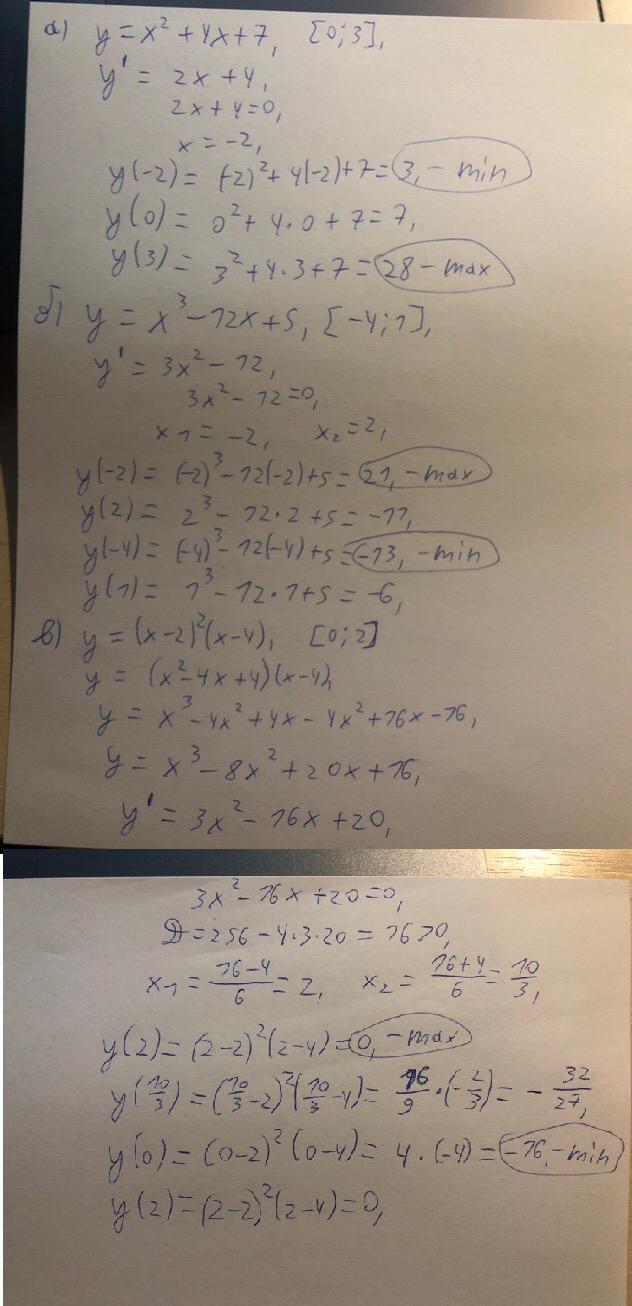 а) y = x² + 4x + 7, [0; 3],
y' = 2x + 4,
2x + 4 = 0,
x = -2,
y(-2) = (-2)² + 4(-2) + 7 = 3, - min
y(0) = 0² + 4·0 + 7 = 7,
y(3) = 3² + 4·3 + 7 = 28 - max
б) y = x³ - 12x + 5, [-4; 1],
y' = 3x² - 12,
3x² - 12 = 0,
x₁ = -2, x₂ = 2,
y(-2) = (-2)³ - 12(-2) + 5 = 21, - max
y(2) = 2³ - 12·2 + 5 = -11,
y(-4) = (-4)³ - 12(-4) + 5 = -13, - min
y(1) = 1³ - 12·1 + 5 = -6,
в) y = (x-2)²(x-4), [0; 2]
y = (x² - 4x + 4)(x-4),
y = x³ - 4x² + 4x - 4x² + 16x - 16,
y = x³ - 8x² + 20x + 16,
y' = 3x² - 16x + 20,
3x² - 16x + 20 = 0,
D = 256 - 4·3·20 = 16 > 0,
x₁ = (16-4)/6 = 2, x₂ = (16+4)/6 = 10/3,
y(2) = (2-2)²(2-4) = 0, - max
y(10/3) = (10/3 - 2)²(10/3 - 4) = 16/9 · (-2/3) = - 32/27,
y(0) = (0-2)²(0-4) = 4·(-4) = -16, - min
y(2) = (2-2)²(2-4) = 0,